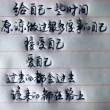 给自己一些时间
原谅做过很多傻事的自己
接受自己
爱自己
过去的都会过去
该来的都在路上